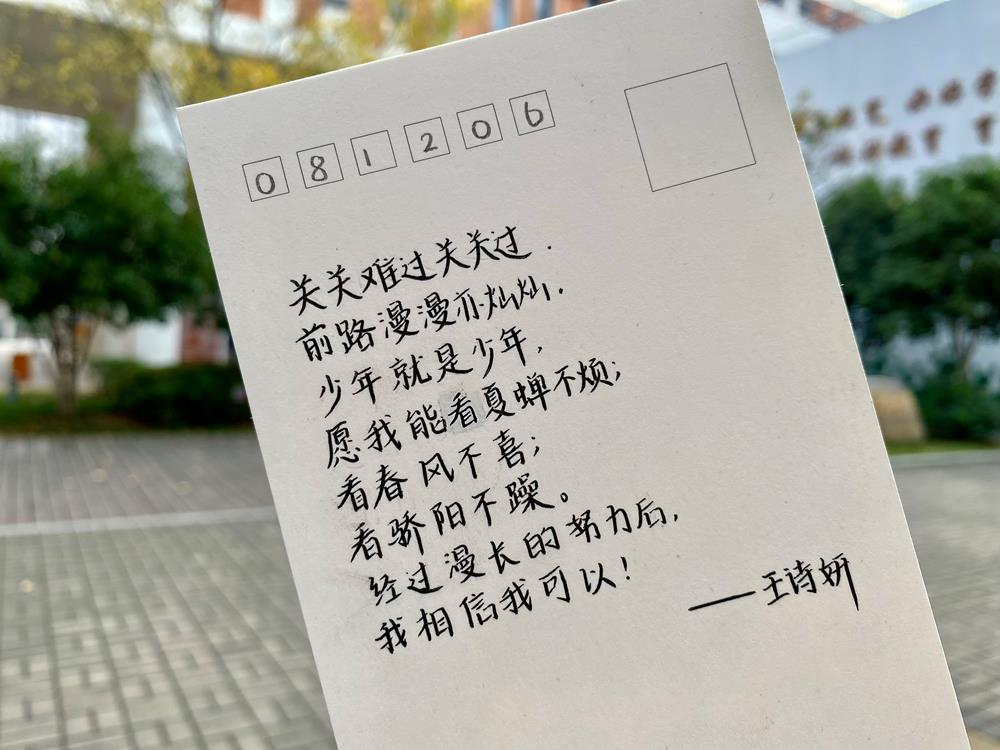 081206
关关难过关关过.
前路漫漫亦灿灿.
少年就是少年,
愿我能看夏蝉不烦;
看春风不喜;
看骄阳不躁。
经过漫长的努力后,
我相信我可以!
——王诗妍